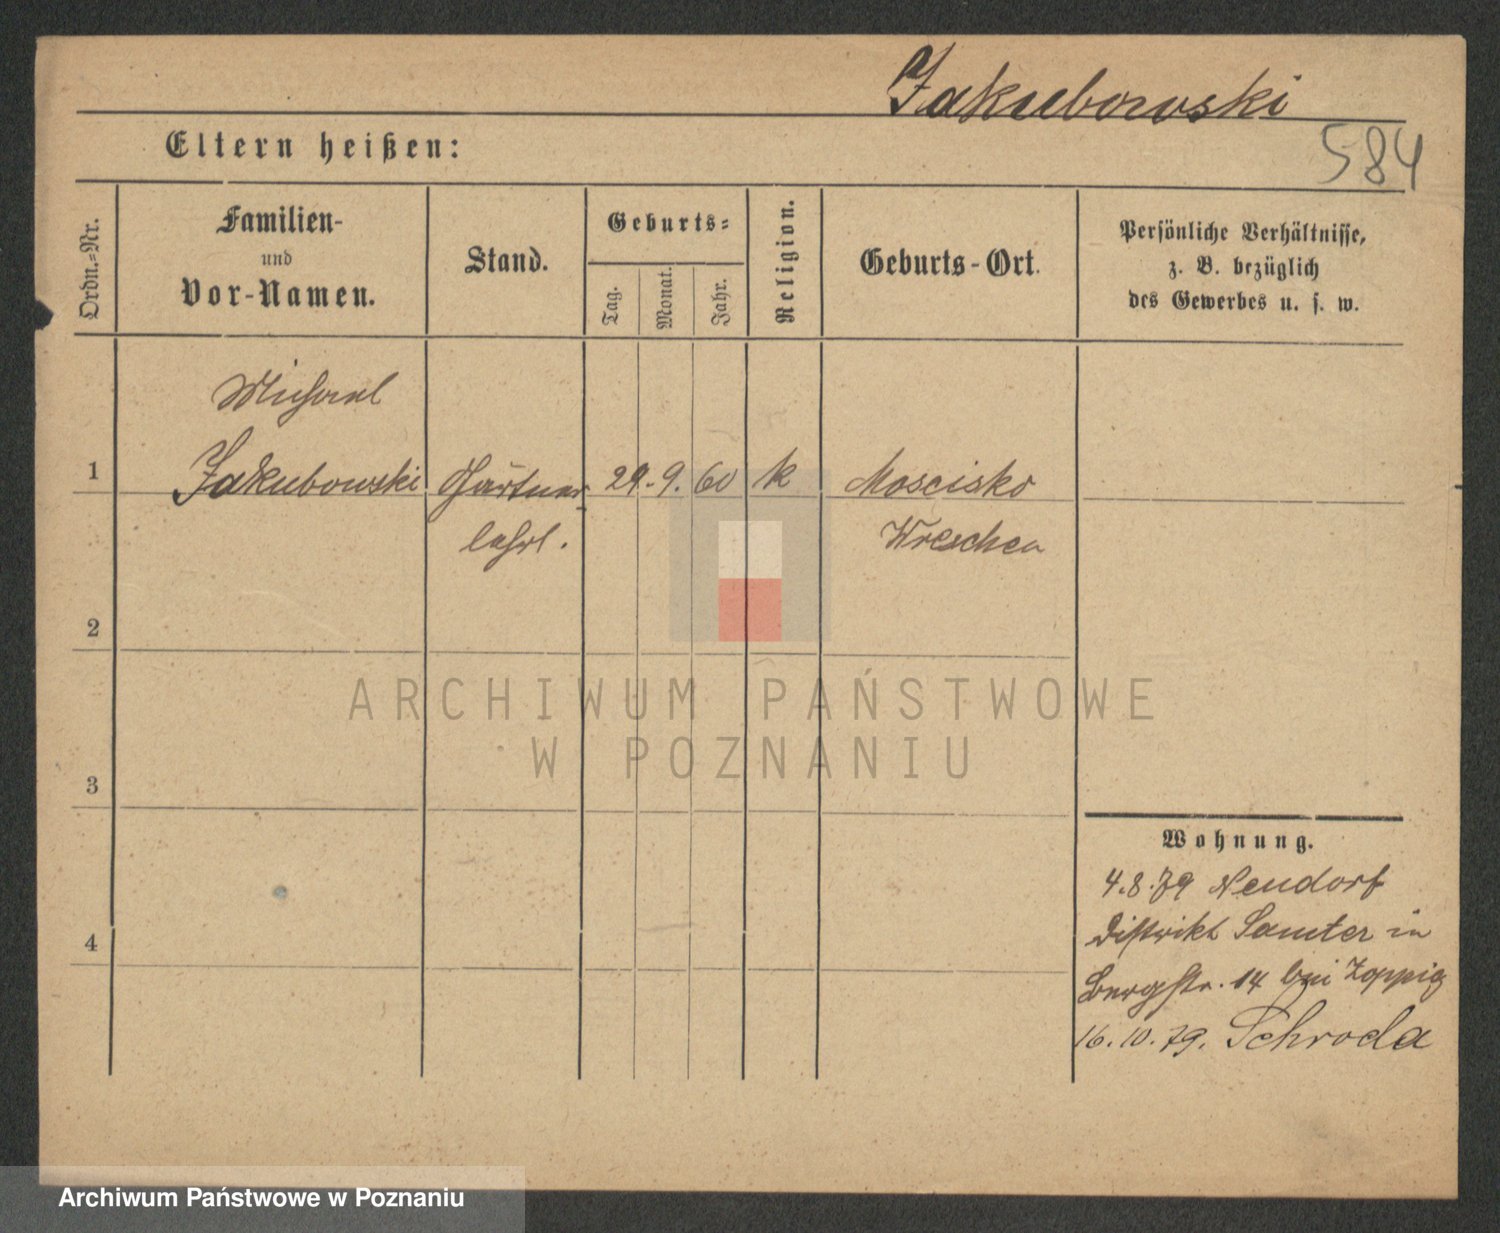 Jakubowski
584
Eltern heißen:
Ordn.-Nr.
Familien-
und
Vor-Namen.
Stand.
Geburts-
Tag.
Monat.
Jahr.
Religion.
Geburts-Ort.
Persönliche Verhältnisse,
z. B. bezüglich
des Gewerbes u. s. w.
Michael
1 Jakubowski Gärtner 29. 9. 60 k Moscisko
lehrl. Wreschen
2
ARCHIWUM PAŃSTWOWE
W POZNANIU
3
Wohnung.
4.8.79 Neudorf
Distrikt Samter in
4
Bergstr. 14 bei Zoppig
16.10.79. Schroda
Archiwum Państwowe w Poznaniu